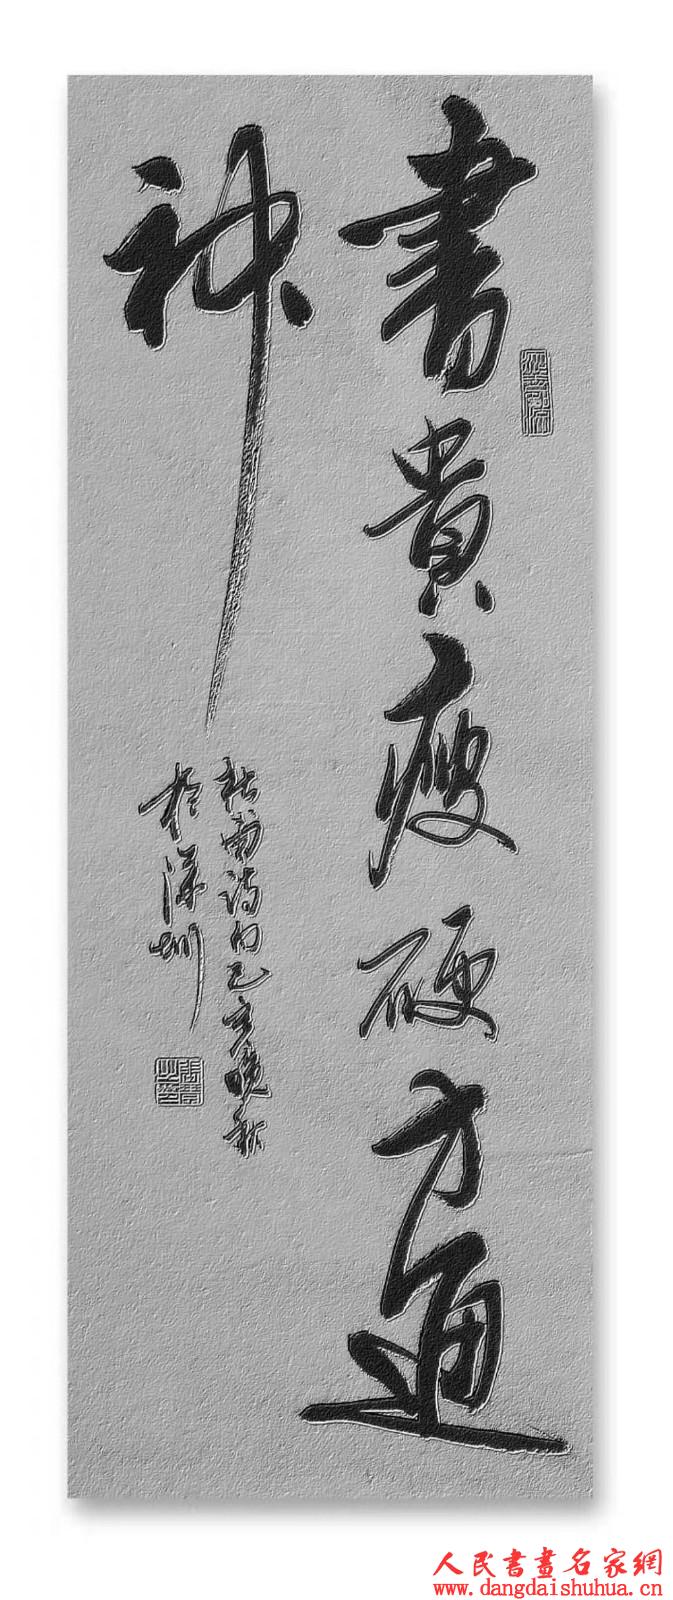 書貴瘦硬方通
神
杜甫詩句己亥晚秋
於深圳
人民書畫名家網
www.dangdaishuhua.cn